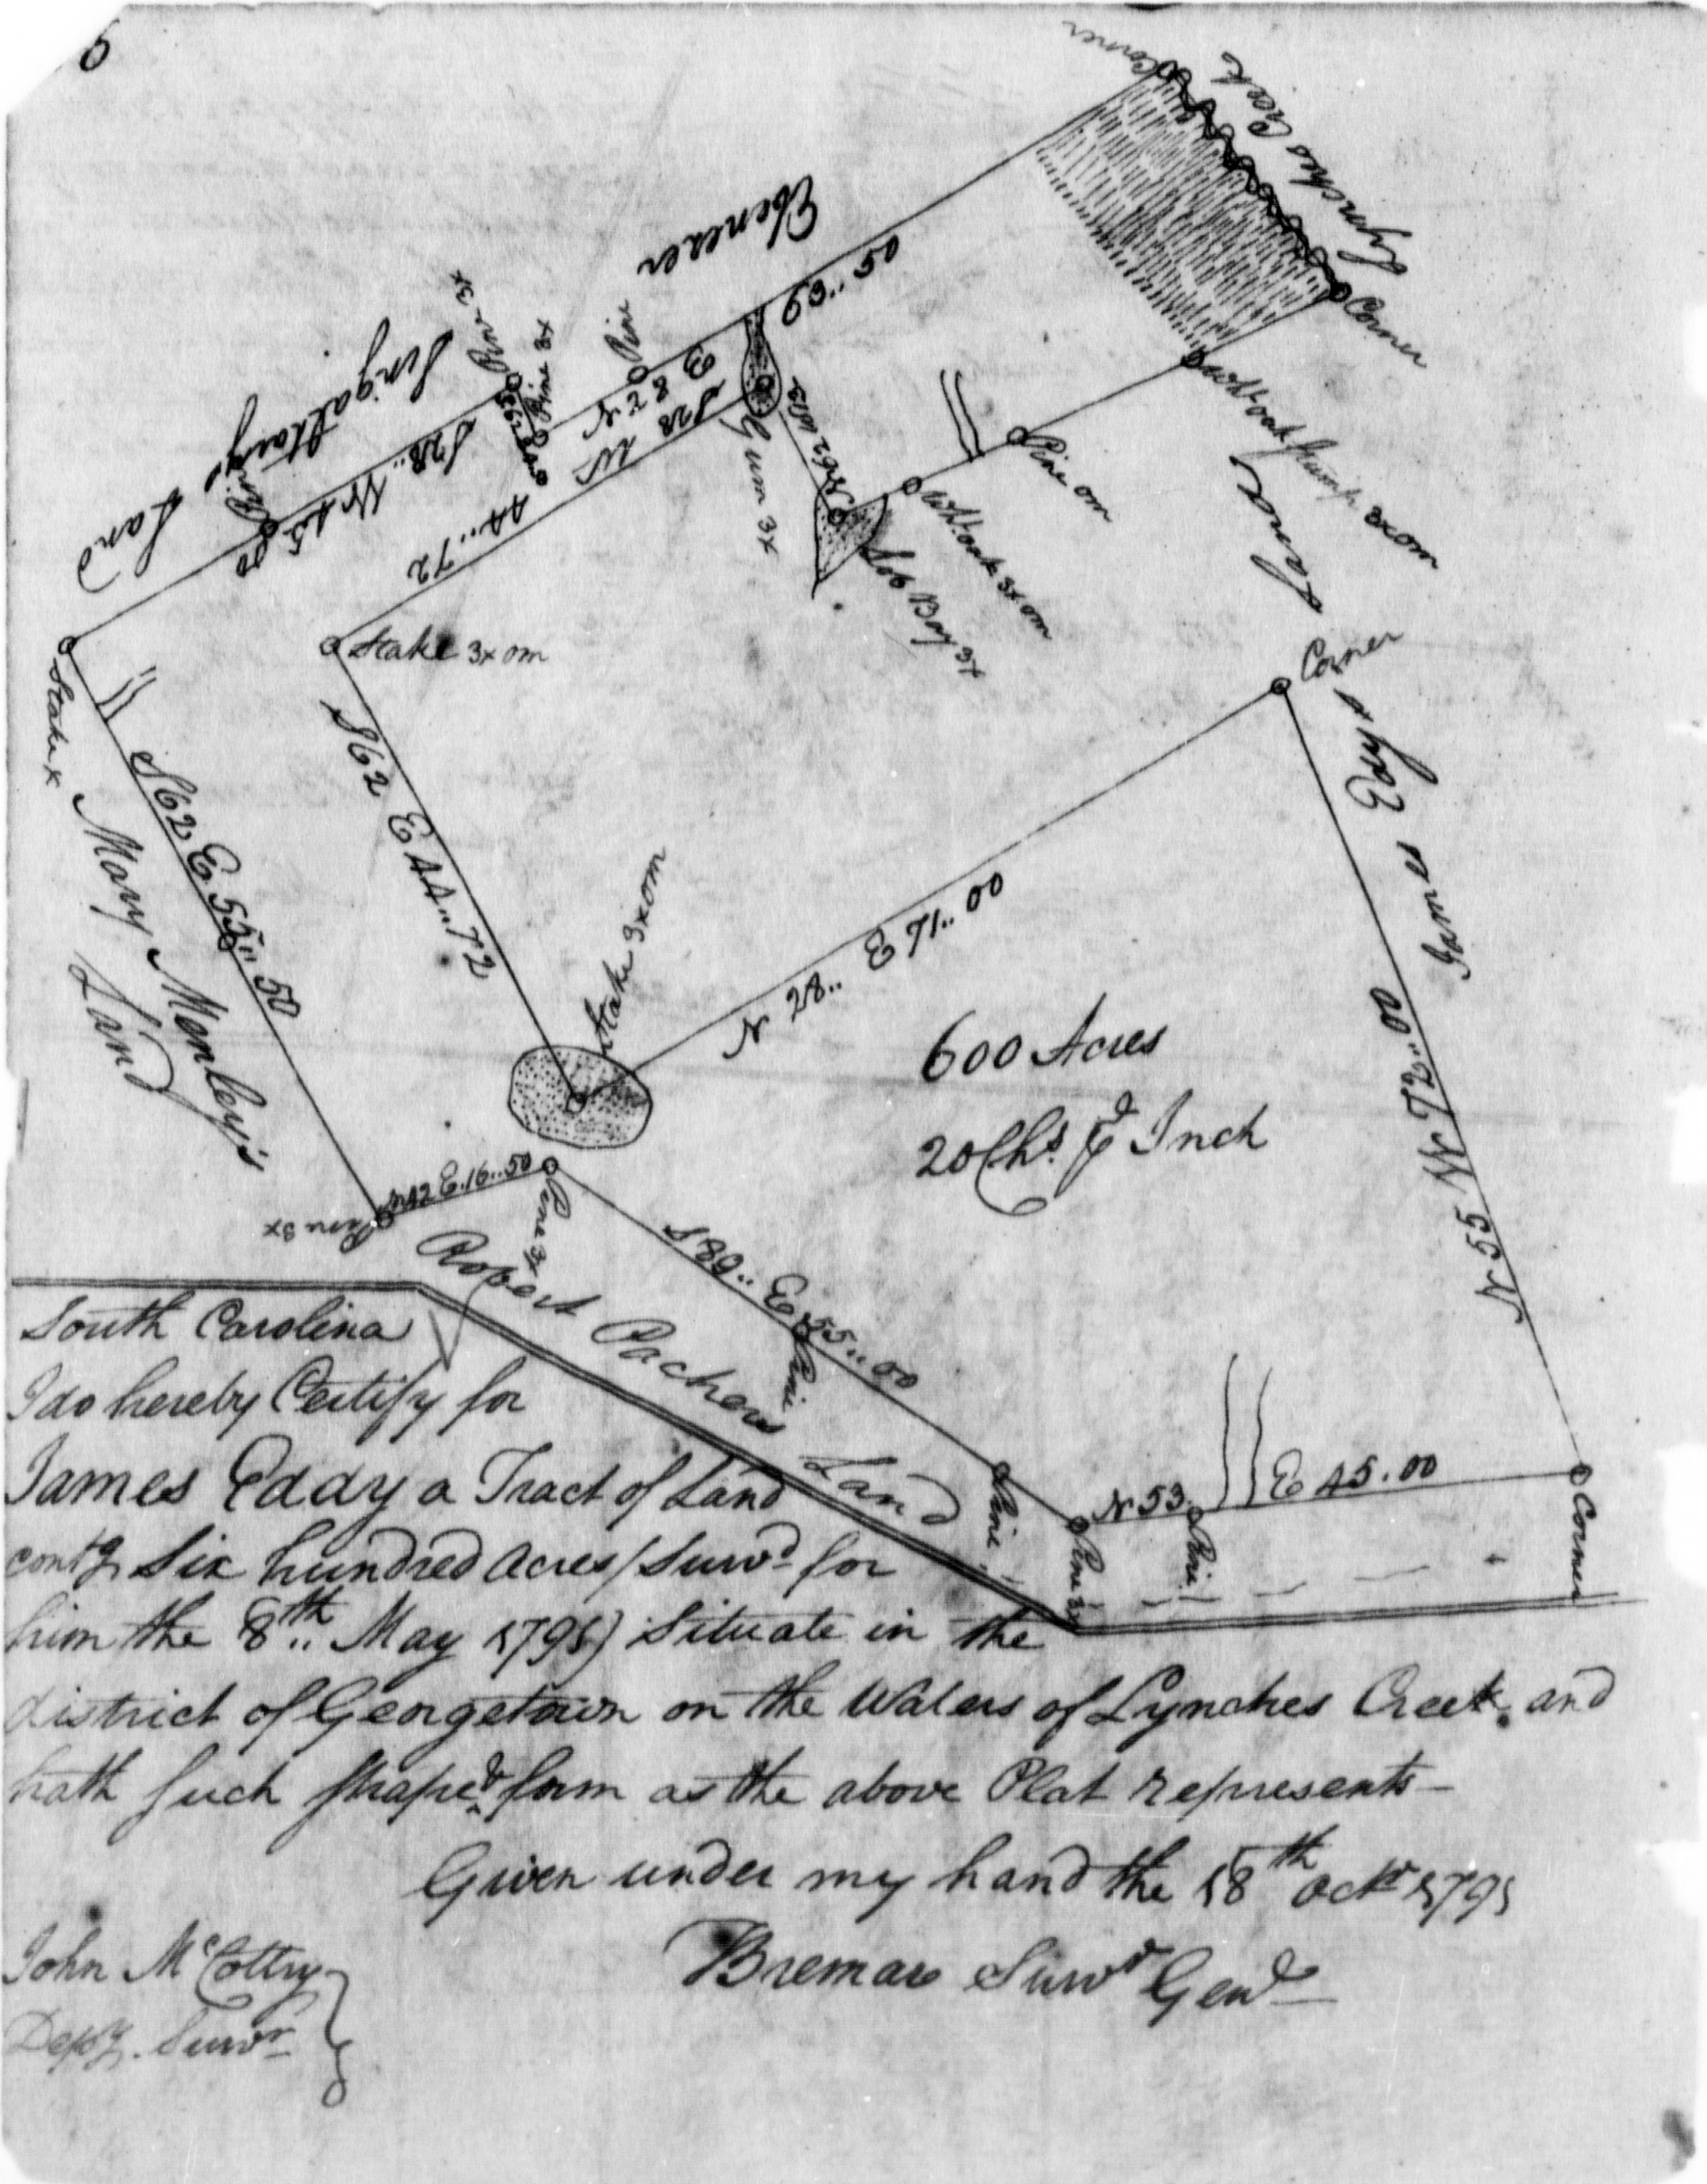 Corner
Lynches Creek
Corner
Ebenezer
69..50
N 28 E
Pine
Pine 3x
Pine 3x
Singaltarys
Land
Pine
S28.. W 45 00
S28 W
44..72
Gum 3x
Lob Bay 3x
Wht oak 3x om
Pine om
Wht oak stump 3x om
Land
Stake 3x om
Stake x
Corner
S62 E 44..72
S62 E 55..50
Mary Manley's
Land
James Eddy's
Stake 3x om
N 28.. E 71..00
600 Acres
20 Chs. ⅌ Inch
N 55 W 72..00
N42 E 16..50
Pine 3x
Pine 3x
Robert Pachers Land
S 89.. E 55..00
Pine
Pine
Pine 3x
N 53.. E 45.00
Pine
Corner
South Carolina
I do hereby Certify for
James Eddy a Tract of Land
contg Six hundred acres (Survd for
him the 8th.. May 1791) Situate in the
district of Georgetown on the Waters of Lynches Creek. and
hath such shape & form as the above Plat represents—
Given under my hand the 18th Octr 1791
Bremar Survr Genl
John McCottry
Depy. Survr